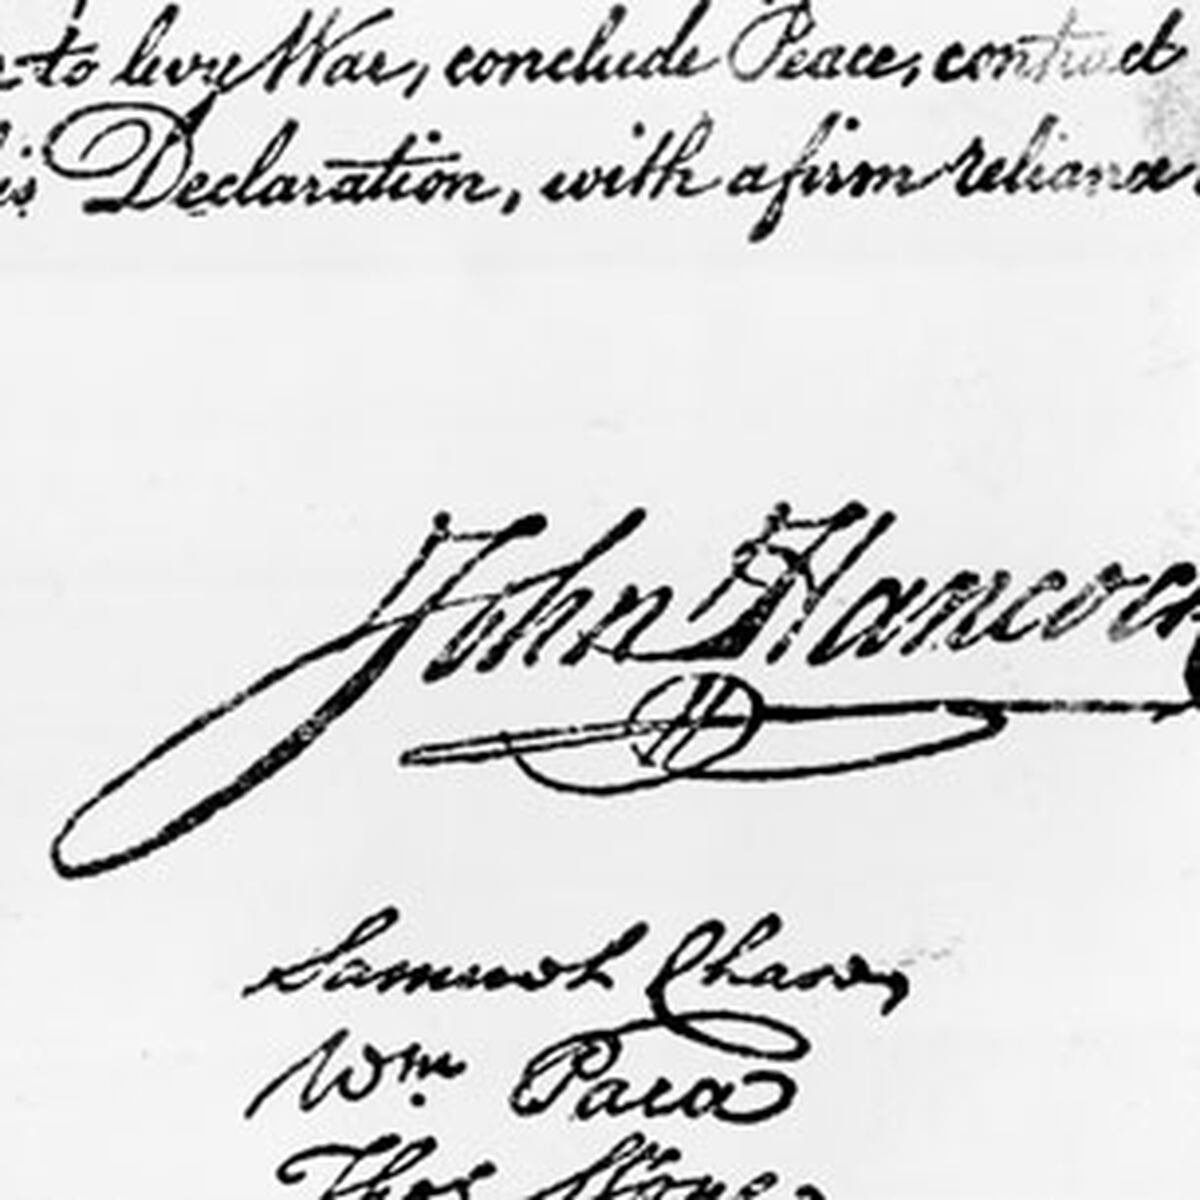 to levy War, conclude Peace, contract
Declaration, with a firm reliance
John Hancock
Samuel Chase
Wm. Paca
Thos Stone